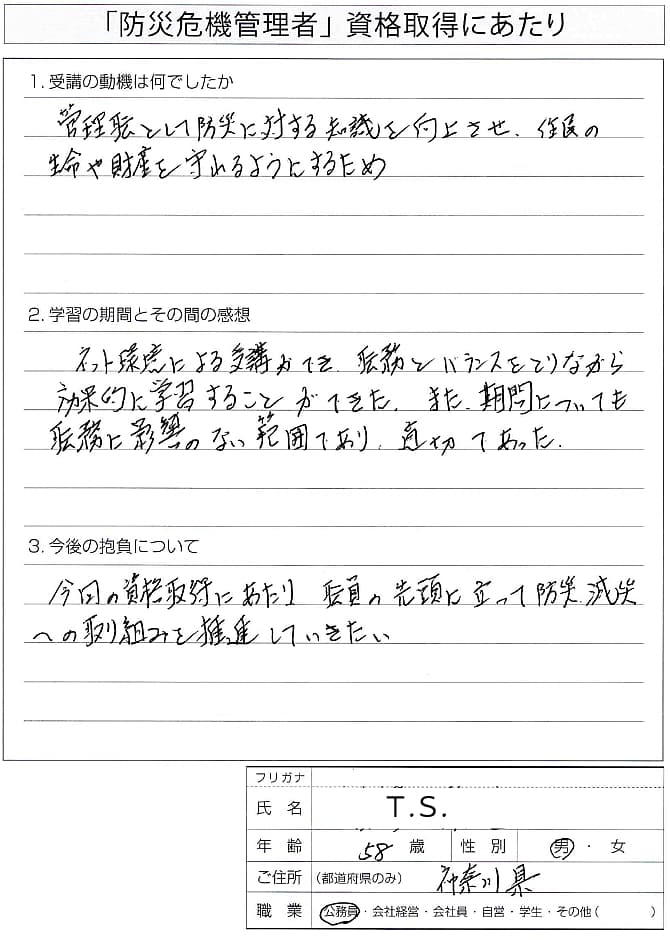 「防災危機管理者」資格取得にあたり
1. 受講の動機は何でしたか
管理職として防災に対する知識を向上させ、住民の
生命や財産を守れるようにするため
2. 学習の期間とその間の感想
ネット環境による受講ができ、職務とバランスをとりながら
効果的に学習することができた。また、期間についても
職務に影響のない範囲であり、適切であった。
3. 今後の抱負について
今回の資格取得にあたり 職員の先頭に立って防災、減災
への取り組みを推進していきたい
フリガナ
氏 名 T.S.
年 齢 58 歳 性 別 男 ・ 女
ご住所 (都道府県のみ) 神奈川県
職 業 公務員・会社経営・会社員・自営・学生・その他( )